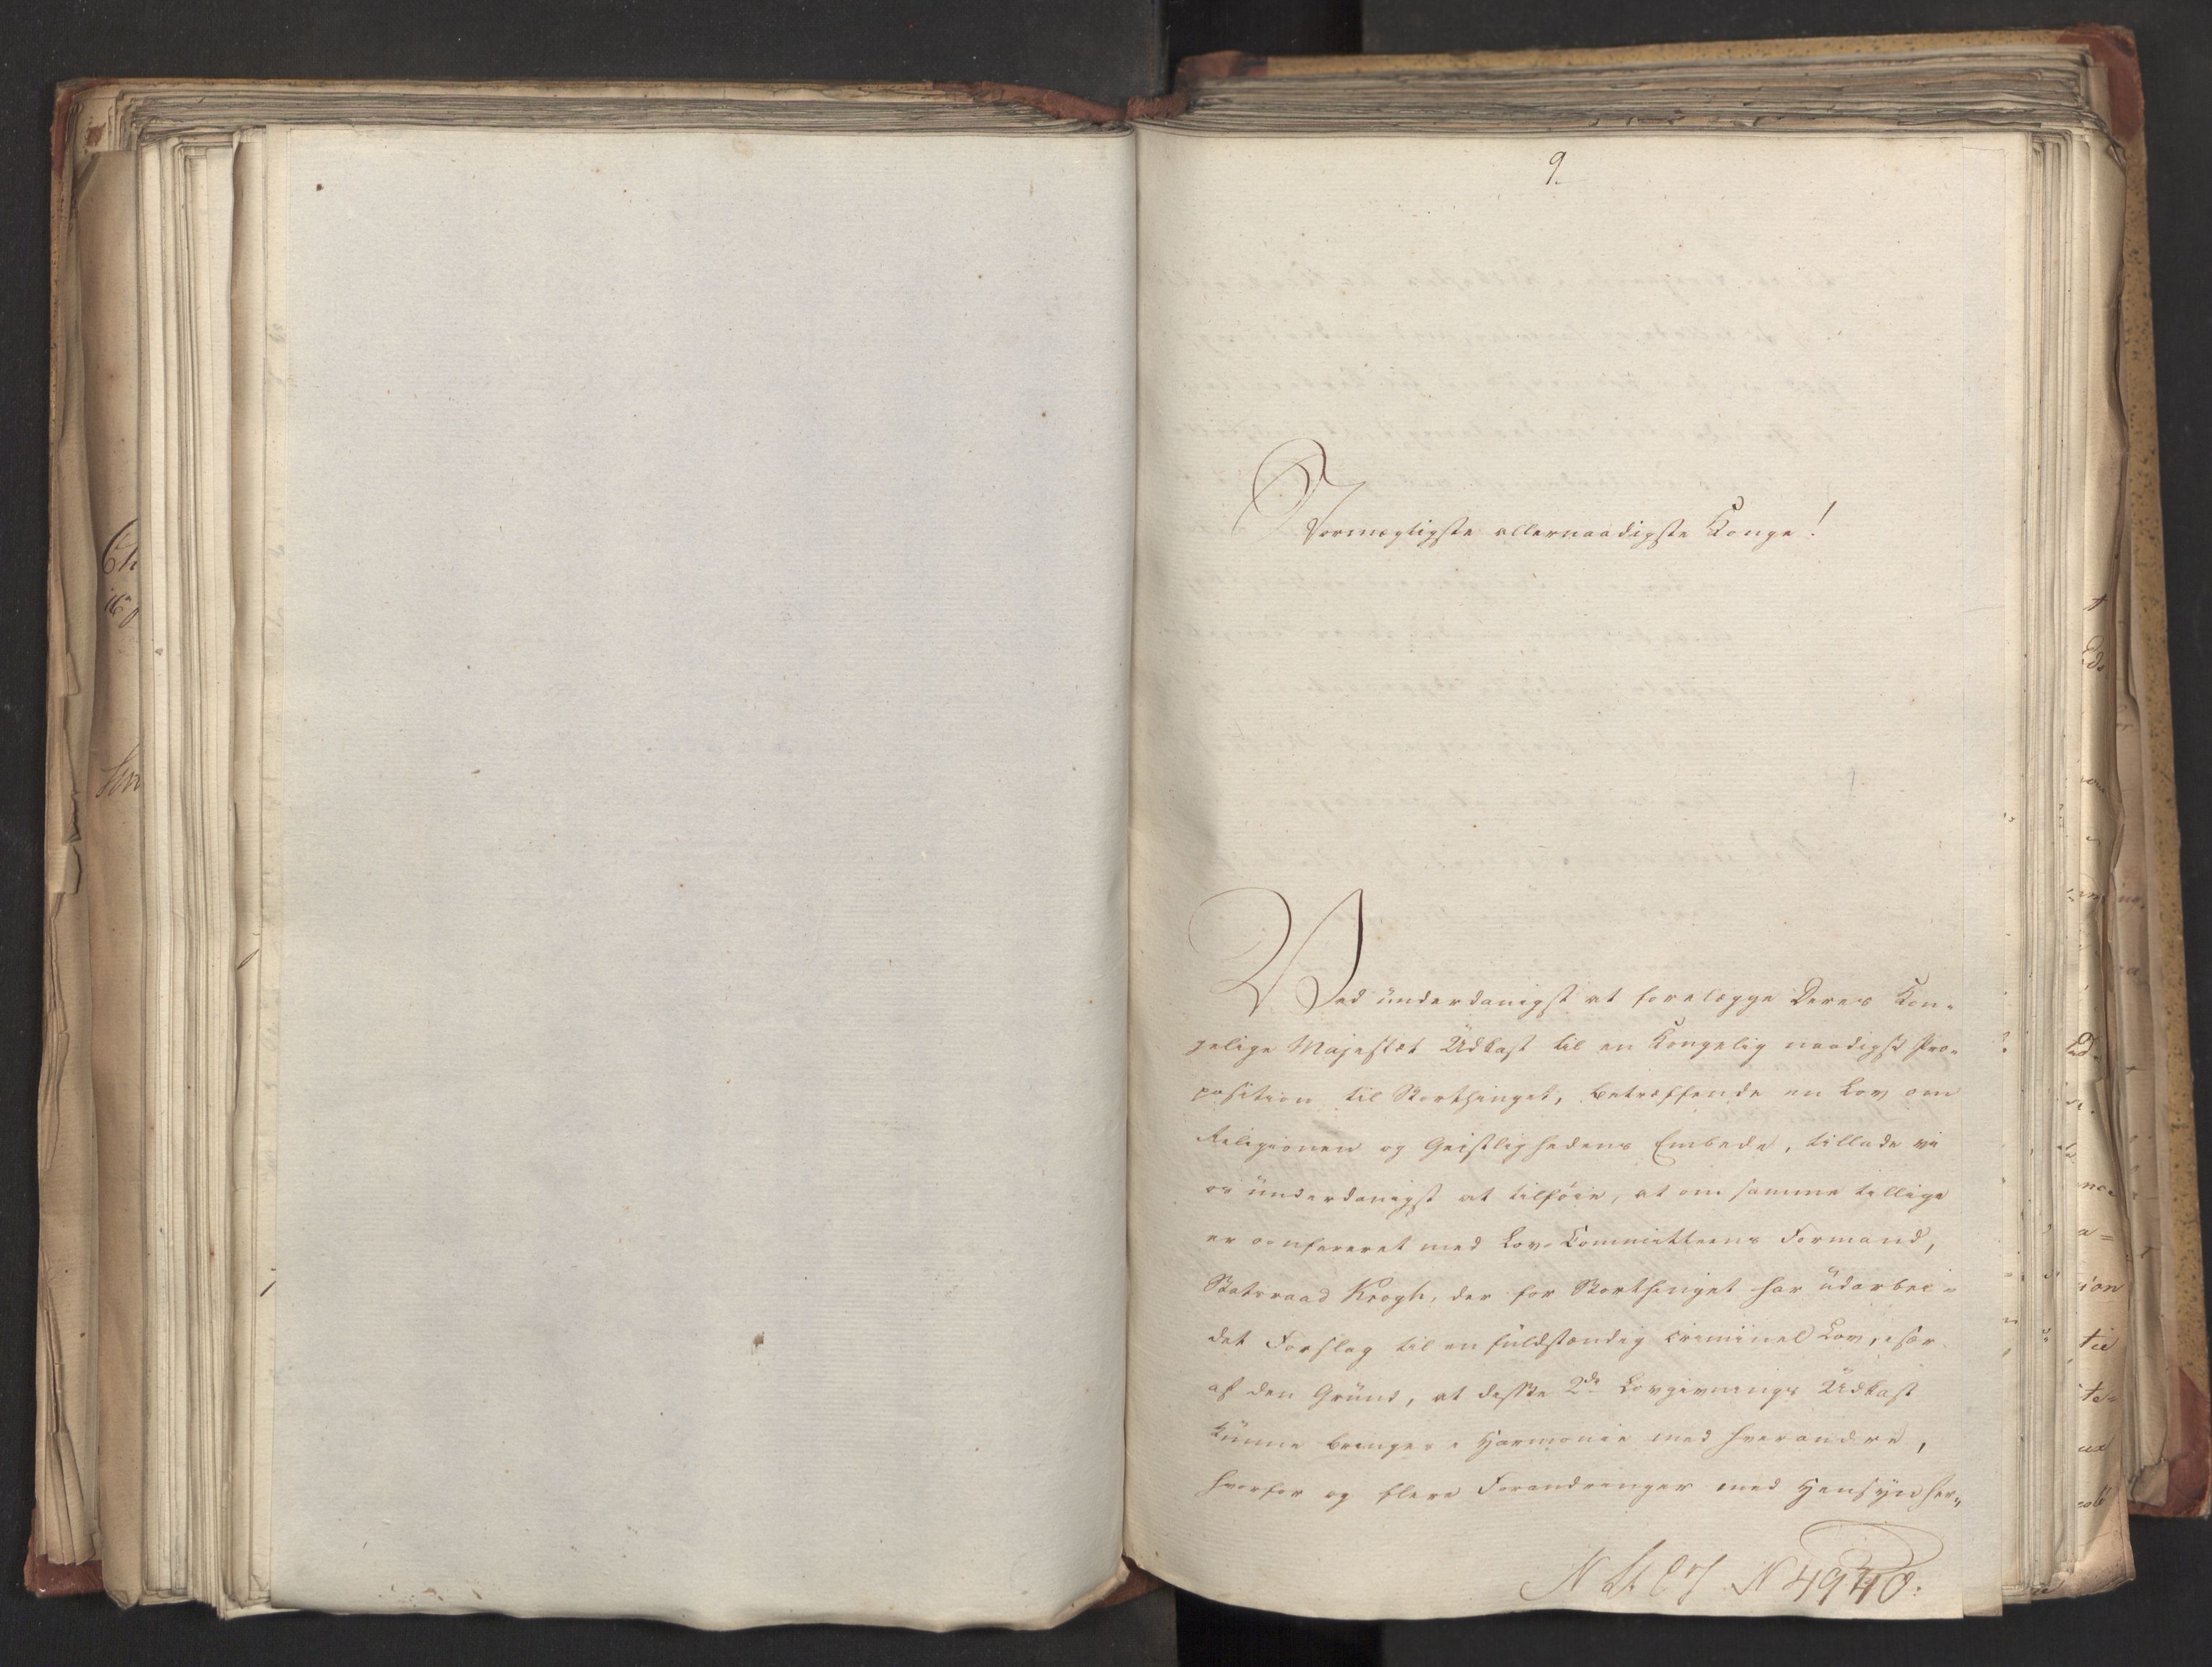 9.
Stormægtigste allernaadigste Konge!
Ved underdanigst at forelægge Deres Kon-
gelige Majestæt Udkast til en Kongelig naadigst Pro-
position til Storthinget, betræffende en Lov om
Religionen og Geistlighedens Embede, tillade vi
os underdanigst at tilføie, at om samme tillige
er confereret med Lov-Committeens Formand,
Statsraad Krogh, der for Storthinget har udarbei-
det Forslag til en fuldstændig criminel Lov, især
af den Grund, at disse 2de Lovgivnings Udkast
kunne bringes i Harmonie med hverandre,
hvorfor og flere Forandringer med Hensyn her-
4940: